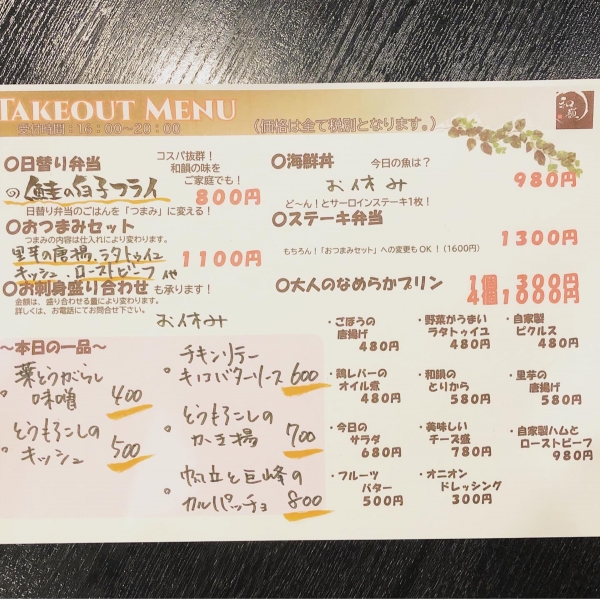 TAKEOUT MENU
受付時間：16：00〜20：00
（価格は全て税別となります。）
和韻
○日替り弁当
コスパ抜群！
和韻の味を
ご家庭でも！
鮭の白子フライ
800円
日替り弁当のごはんを「つまみ」に変える！
○おつまみセット
つまみの内容は仕入れにより変わります。
里芋の唐揚、ラタトゥイユ
キッシュ、ローストビーフ 他
1100円
○お刺身盛り合わせも承ります！
金額は、盛り合わせる量により変わります。
詳しくは、お電話にてお問合せ下さい。
お休み
○海鮮丼
今日の魚は？
お休み
980円
ど〜ん！とサーロインステーキ1枚！
○ステーキ弁当
1300円
もちろん！「おつまみセット」への変更もOK！（1600円）
○大人のなめらかプリン
1個 300円
4個1000円
〜本日の一品〜
葉とうがらし
味噌
400
とうもろこしの
キッシュ
500
チキンソテー
キノコバターソース 600
とうもろこしの
かき揚 700
帆立と巨峰の
カルパッチョ 800
・ごぼうの
唐揚げ
480円
・野菜がうまい
ラタトゥイユ
480円
・自家製
ピクルス
480円
・鶏レバーの
オイル煮
480円
・和韻の
とりから
580円
・里芋の
唐揚げ
580円
・今日の
サラダ
680円
・美味しい
チーズ盛
780円
・自家製ハムと
ローストビーフ
980円
・フルーツ
バター
500円
・オニオン
ドレッシング
300円